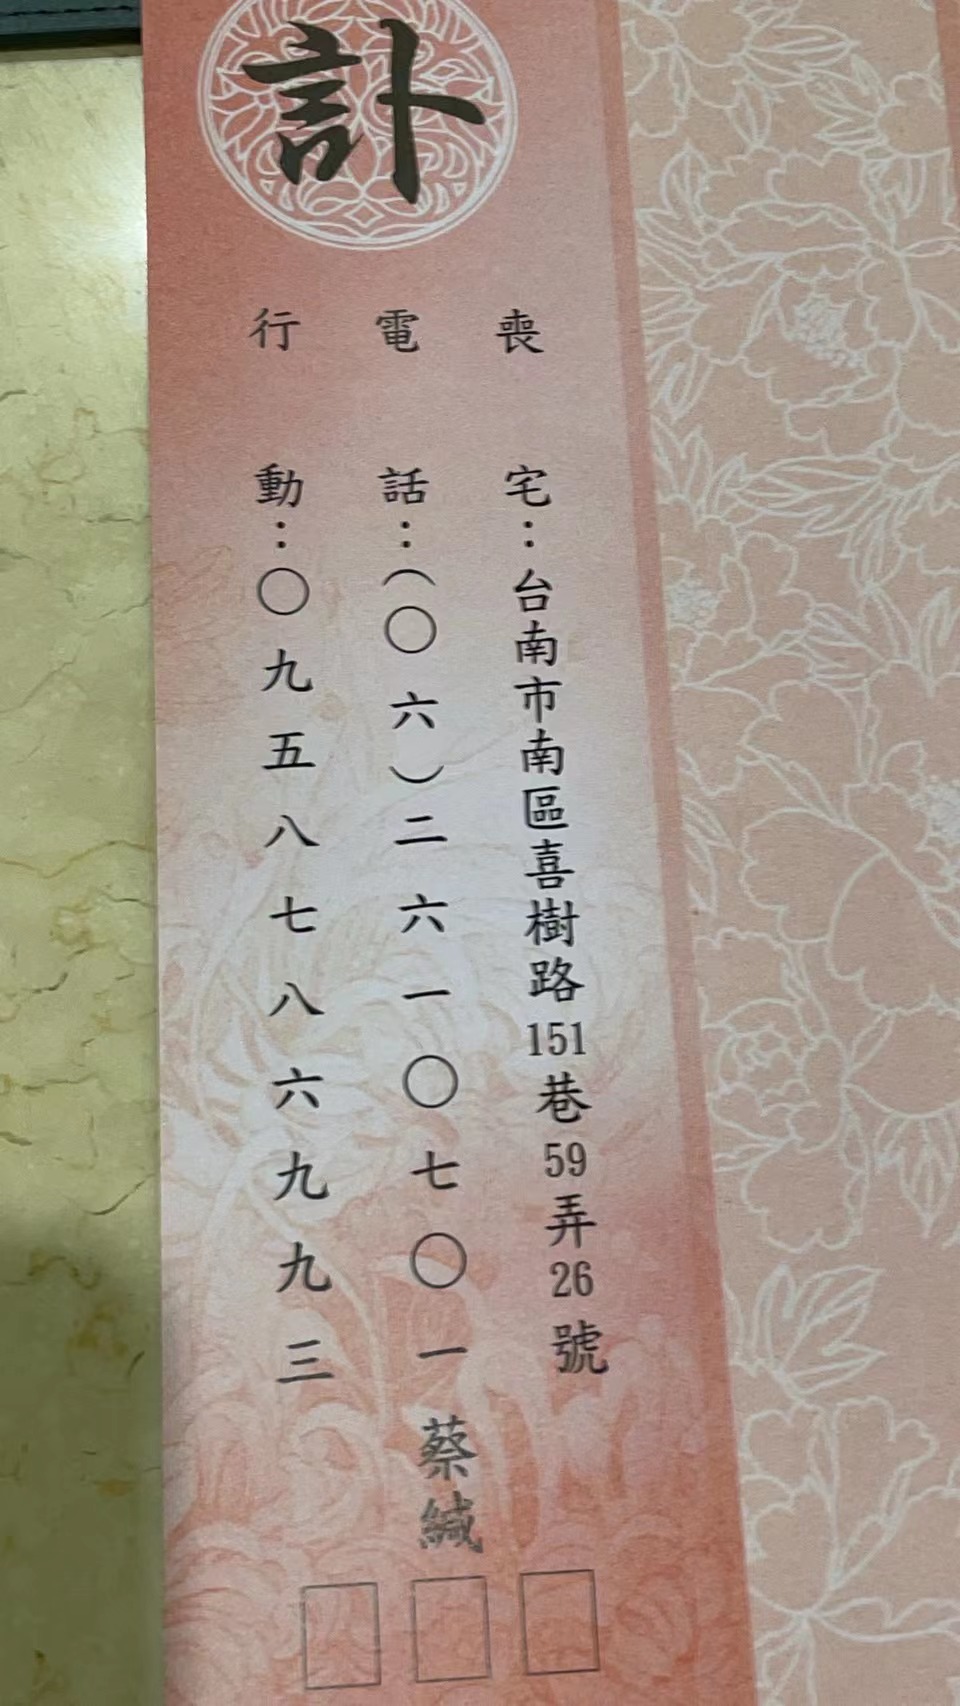 訃
喪宅：台南市南區喜樹路151巷59弄26號
電話：（〇六）二六一〇七〇一
行動：〇九五八七八六九九三
蔡緘